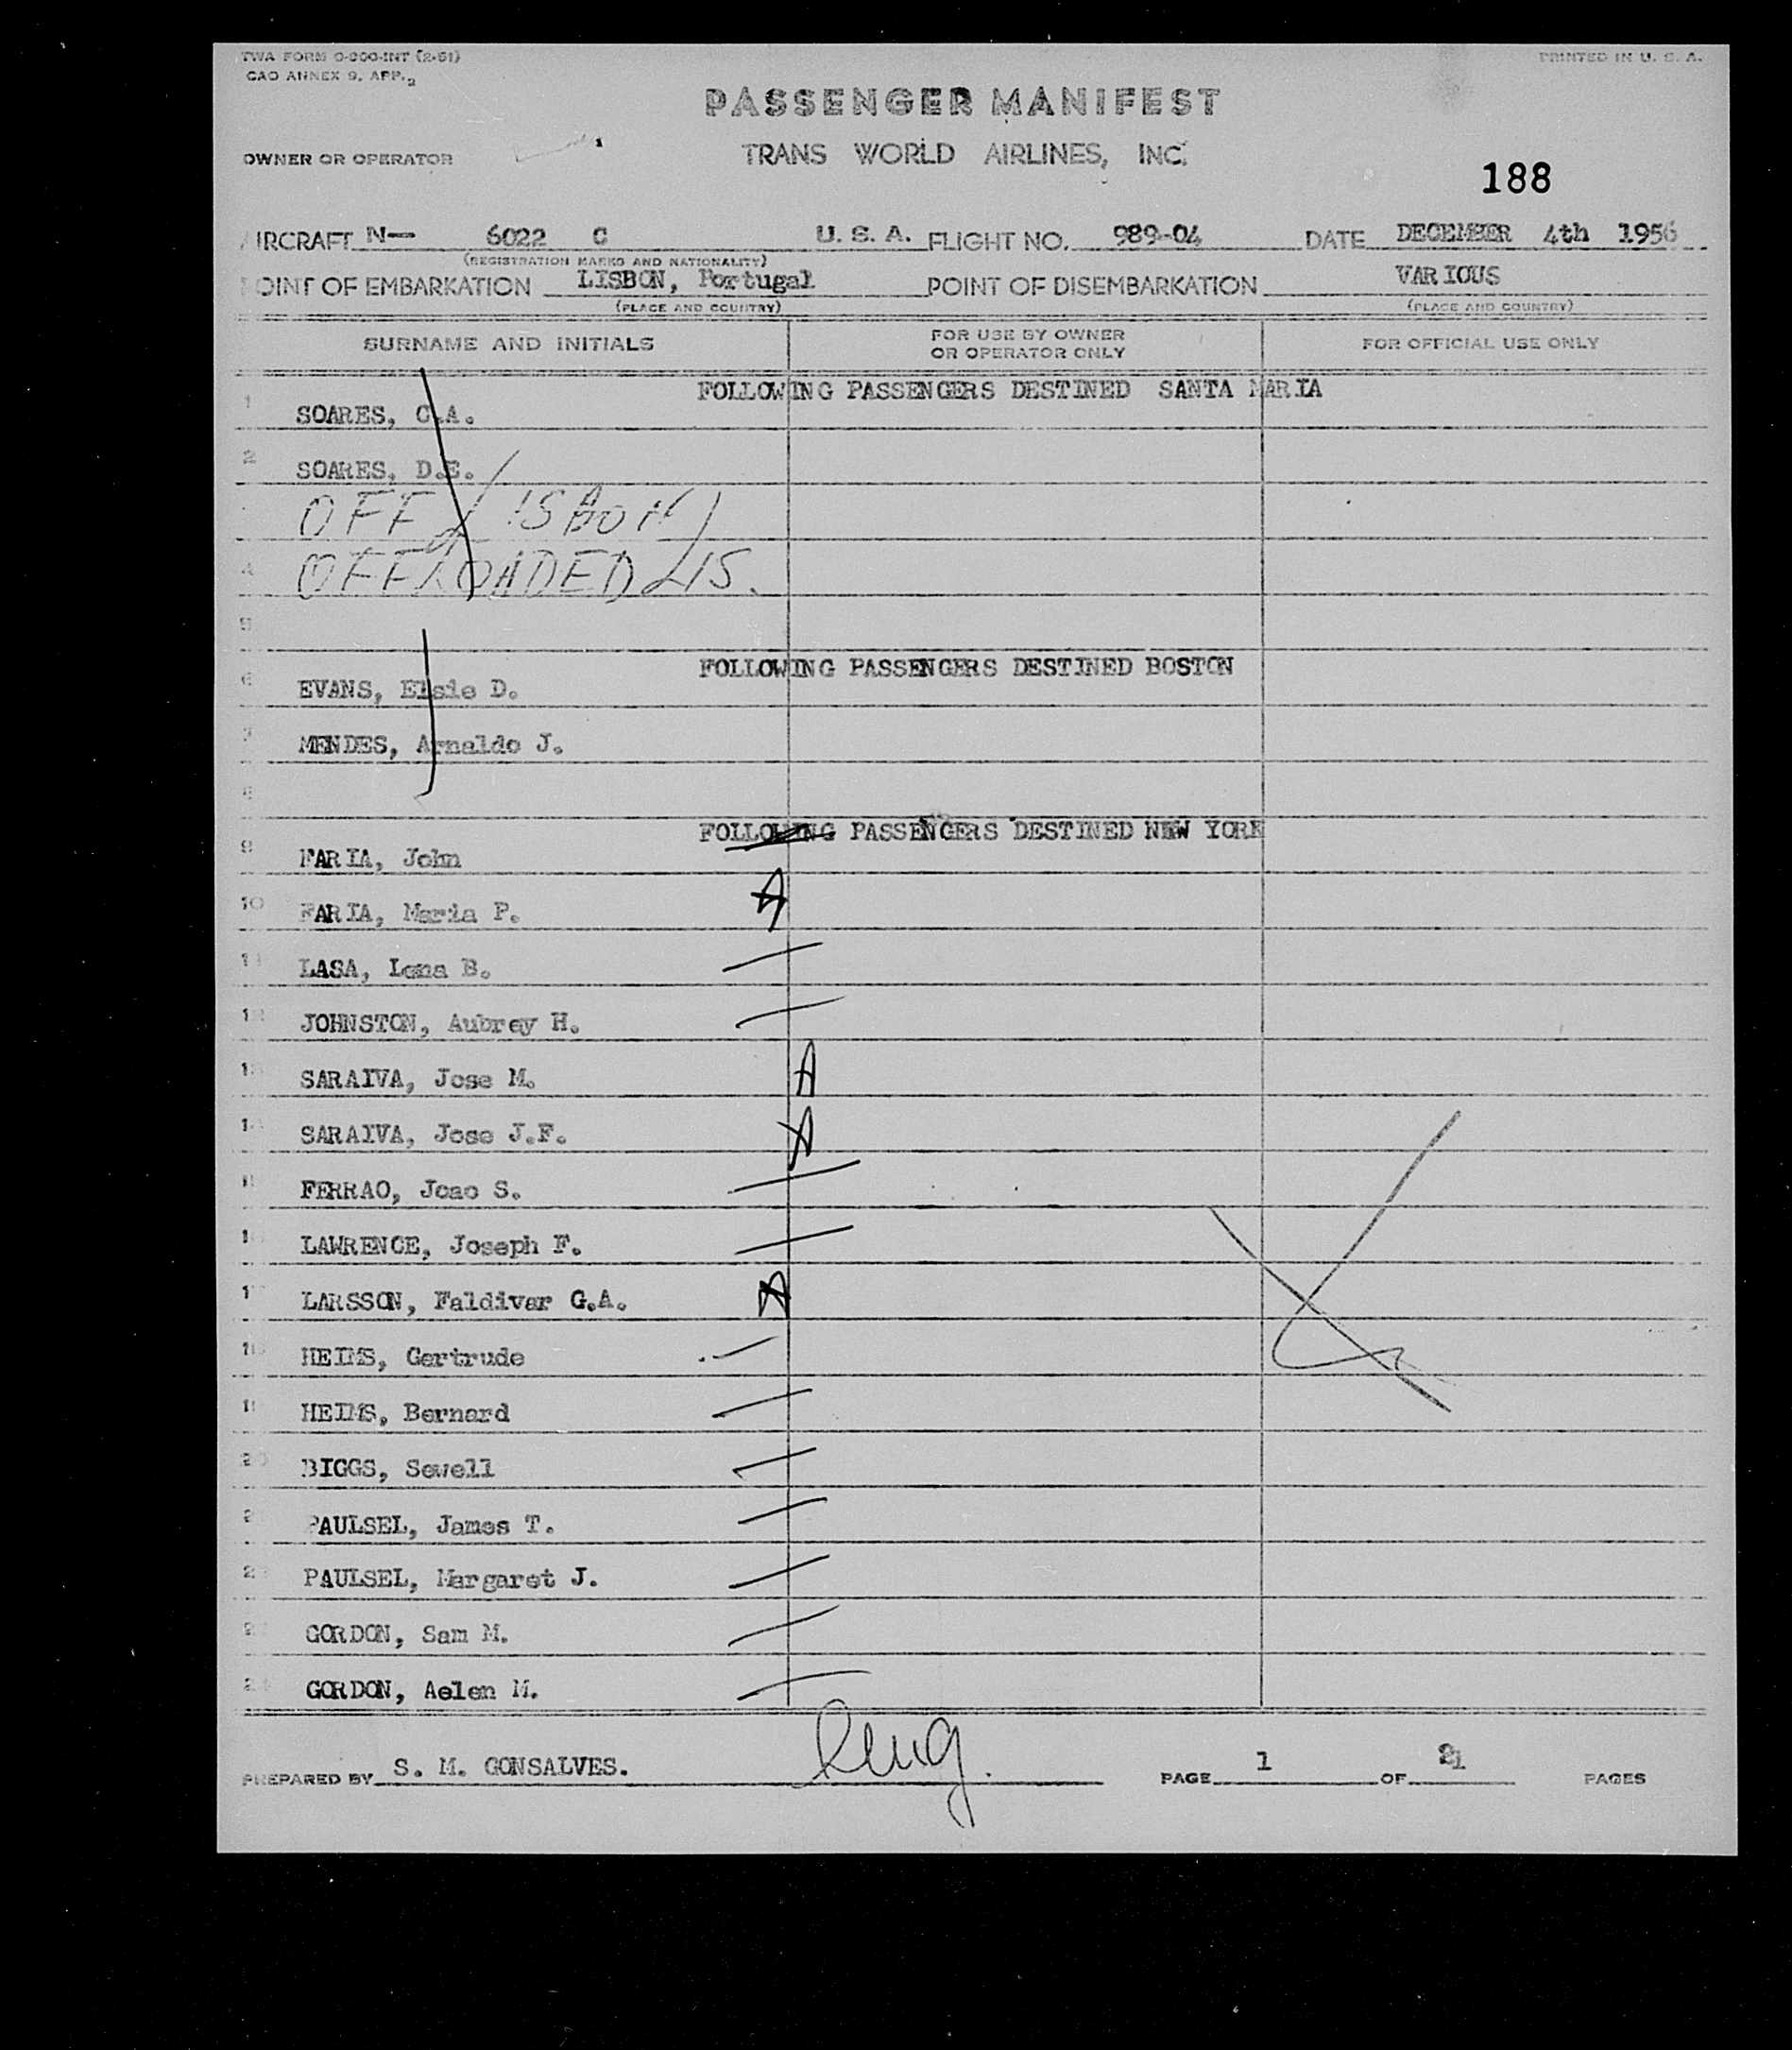 TWA FORM O-800-INT (2-51)
PRINTED IN U. S. A.
CAO ANNEX 9, APP. 2
PASSENGER MANIFEST
OWNER OR OPERATOR
TRANS WORLD AIRLINES, INC.
188
AIRCRAFT N— 6022 C U. S. A. FLIGHT NO. 989-04 DATE DECEMBER 4th 1956
(REGISTRATION MARKS AND NATIONALITY)
POINT OF EMBARKATION LISBON, Portugal POINT OF DISEMBARKATION VARIOUS
(PLACE AND COUNTRY) (PLACE AND COUNTRY)
SURNAME AND INITIALS FOR USE BY OWNER OR OPERATOR ONLY FOR OFFICIAL USE ONLY
FOLLOWING PASSENGERS DESTINED SANTA MARIA
1 SOARES, C.A.
2 SOARES, D.E.
OFF LISBON
4 OFFLOADED LIS.
5
FOLLOWING PASSENGERS DESTINED BOSTON
6 EVANS, Elsie D.
7 MENDES, Arnaldo J.
8
FOLLOWING PASSENGERS DESTINED NEW YORK
9 FARIA, John
10 FARIA, Maria P. A
11 LASA, Lona B.
12 JOHNSTON, Aubrey H.
13 SARAIVA, Jose M. A
14 SARAIVA, Jose J.F. A
15 FERRAO, Joao S.
16 LAWRENCE, Joseph F.
17 LARSSON, Faldivar G.A. A
18 HEIMS, Gertrude
19 HEIMS, Bernard
20 BIGGS, Sewell
21 PAULSEL, James T.
22 PAULSEL, Margaret J.
23 GORDON, Sam M.
24 GORDON, Aelen M.
PREPARED BY S. M. GONSALVES. PAGE 1 OF PAGES